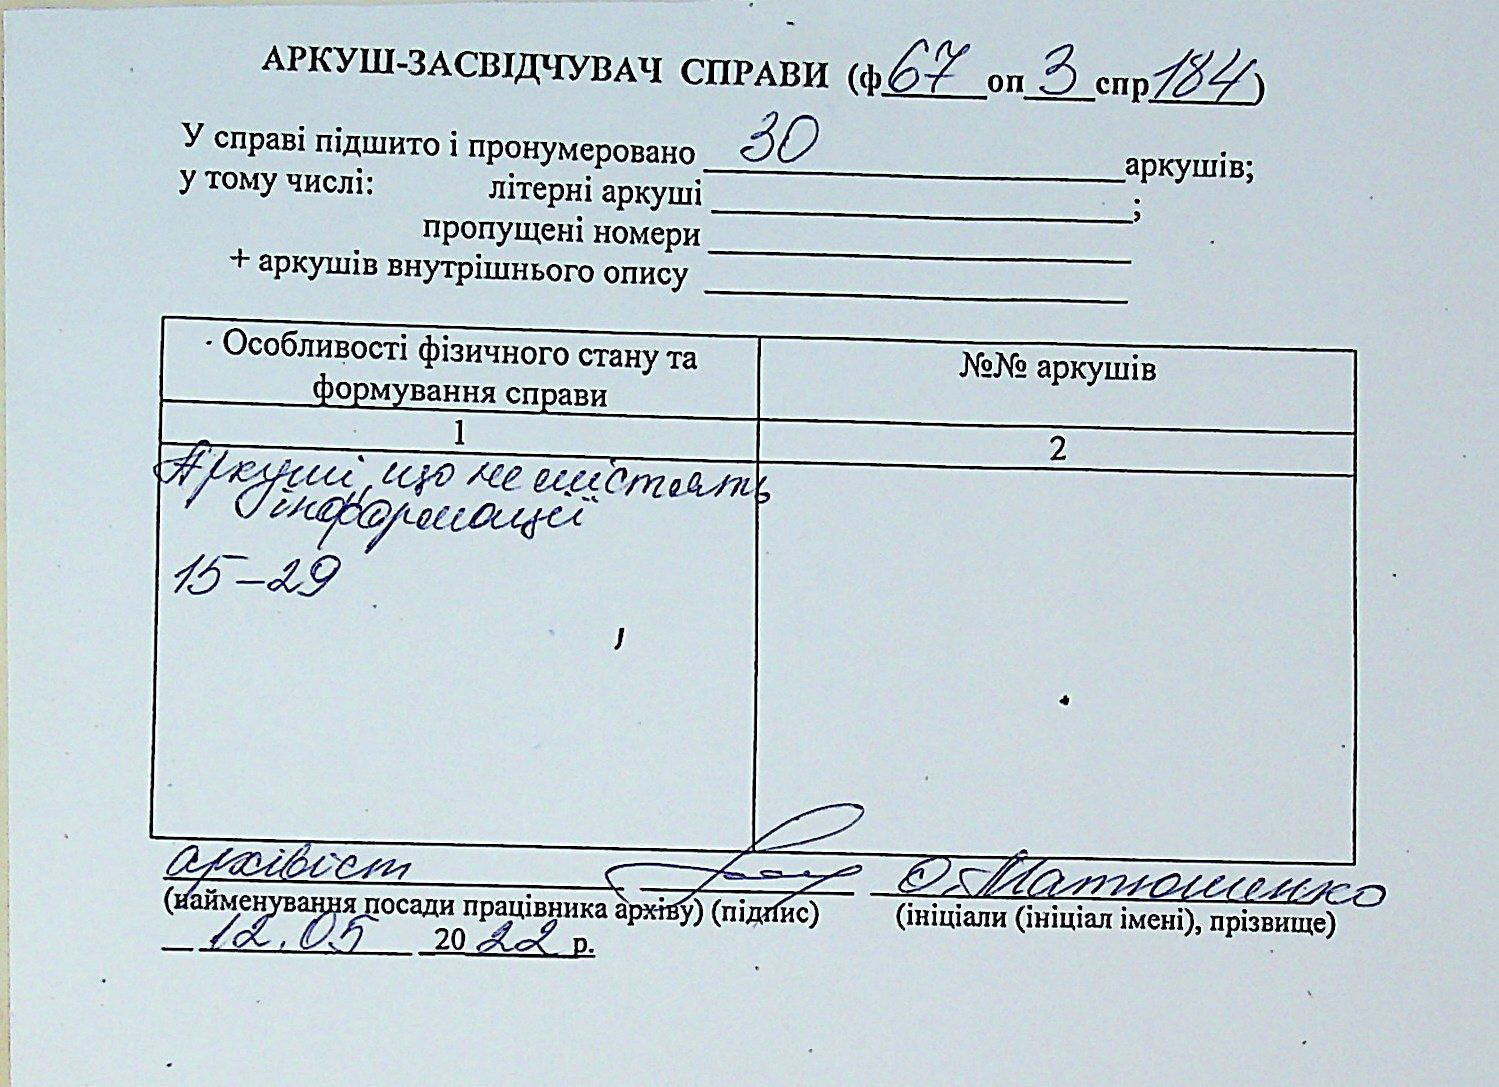 АРКУШ-ЗАСВІДЧУВАЧ СПРАВИ (ф 67 оп 3 спр 184)
У справі підшито і пронумеровано 30 аркушів;
у тому числі: літерні аркуші ;
пропущені номери
+ аркушів внутрішнього опису
Особливості фізичного стану та формування справи
№№ аркушів
1
2
Аркуші, що не містять
інформації
15-29
архівіст О. Матюшенко
(найменування посади працівника архіву) (підпис) (ініціали (ініціал імені), прізвище)
12.05 2022 р.